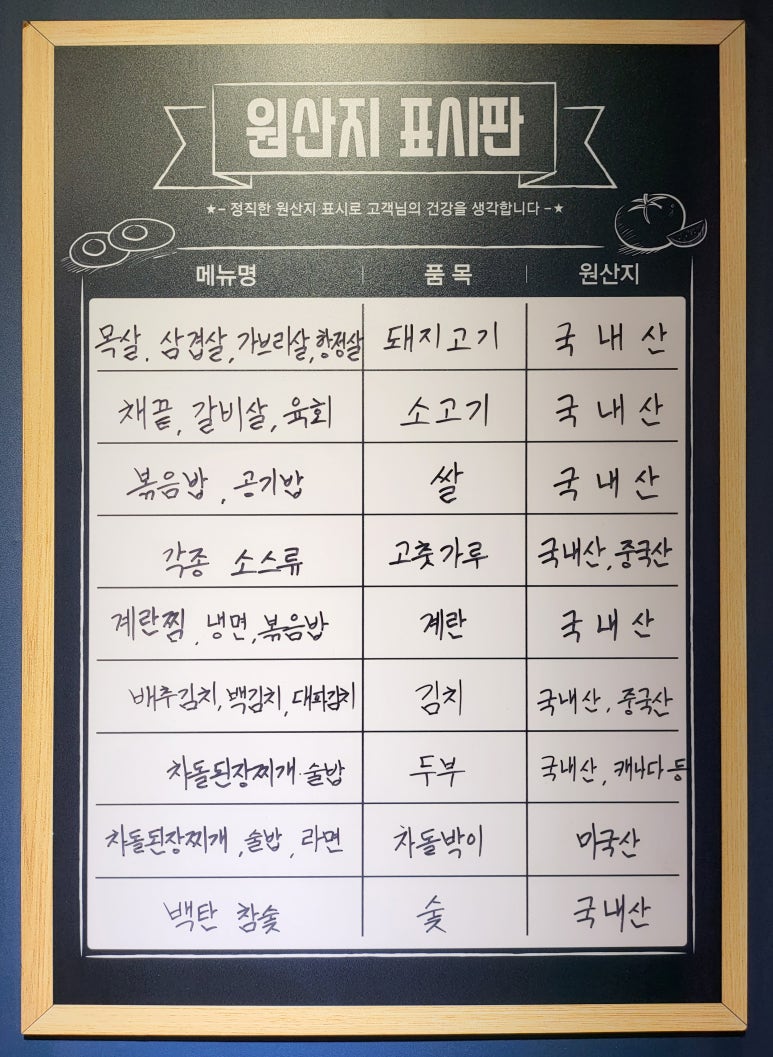 원산지 표시판
★- 정직한 원산지 표시로 고객님의 건강을 생각합니다 -★
메뉴명 품목 원산지
목살, 삼겹살, 가브리살, 항정살 돼지고기 국내산
채끝, 갈비살, 육회 소고기 국내산
볶음밥, 공기밥 쌀 국내산
각종 소스류 고춧가루 국내산, 중국산
계란찜, 냉면, 볶음밥 계란 국내산
배추김치, 백김치, 대파김치 김치 국내산, 중국산
차돌된장찌개·술밥 두부 국내산, 캐나다 등
차돌된장찌개, 술밥, 라면 차돌박이 미국산
백탄 참숯 숯 국내산